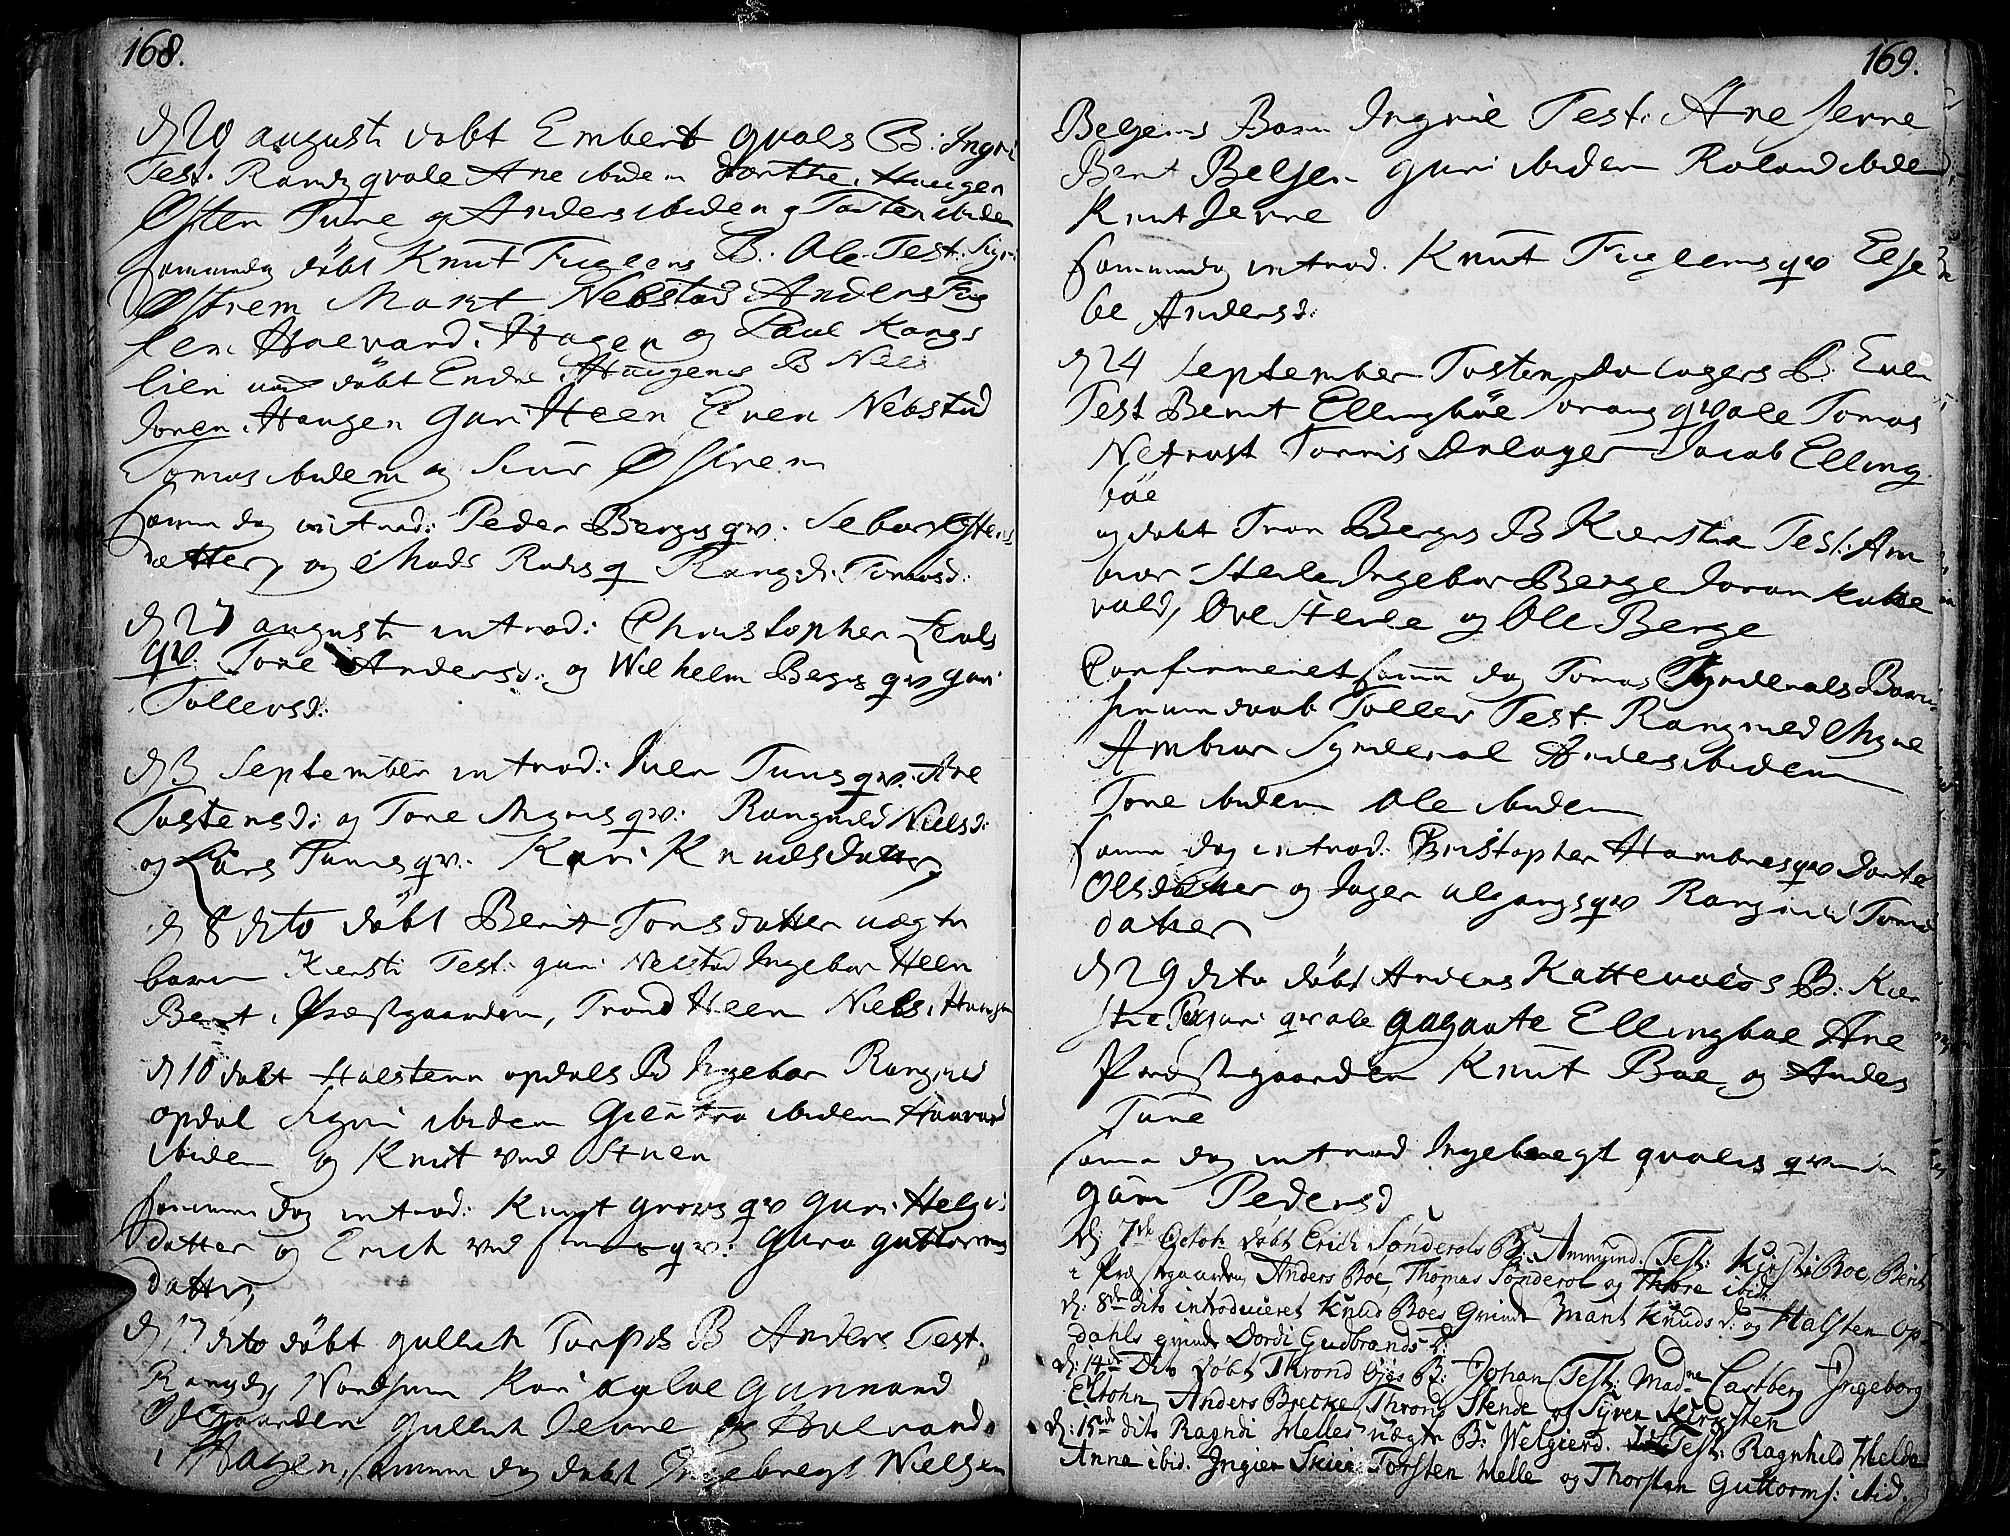 168.
d 20 augusti döbt Embert qvals B: Ingri
Test. Randi qvale Ane ibidem Dorthe Haugen
Østen Tune og Anders ibidem og Tosten ibidem
samme dag döbt Knut Fuglens B: Ole Test: Sigri
Østrem Marit Nebstad Anders Fug
len Haevard i Hagen og Paul Kongs
lien döbt Endre Haugens B Niels
Joren i Haugen Guri Heen Even Nebstad
Tomas ibidem og Siur Østrem
samme dag introd: Peder Bergs qv: Sebor Østens
datter, og Mads Rudis q Rangdi Tomasd:
d 27 augusti introd: Christopher
qv: Tore Andersd: og Wilhelm Bergs qv Guri
Tollevsd:
d 3 September introd: Iver Tuns qv: Ane
Tostensd: og Tore Mÿrens qv: Rangnild Nielsd:
og Lars Tunes qv: Kari Knudsdatter,
d 8 dito döbt Berit Tonsdatter uægte
barn Kiersti Test: guri Nebstad Ingebor Heen
Bent i Præstgaarden, Trond Heen Niels i Haugen
d 10 döbt Halsten opdals B Ingebor Rangnild
opdal Sigri ibidem Giertrø ibidem Haavard
ibidem og Knut ved Stuen
samme dag introd: Knut qv Guri Helges
datter og Erich ved qv: Guro guttorms
datter,
d 17 dito döbt gullich Torpes B Anders Test.
Rangdi Nordsven Kari Gunnord
Ødegaarden Gullich Jerne og Halvard
i Hagen, samme dag döbt Ingebregt Nielsen
169.
Belgens Barn Ingrie Test: Ane Jerne
Berit Belgen guri ibidem Roland ibidem
Knut Jerne
samme dag introd. Knut Fuglens qv Else
be Andersd:
d 24 September Tosten Dalagers B: Even
Test Berit Ellingböe Joran qvale Tomas
Netrost Torris Dalager Jacob Elling
böe
og döbt Tron Berges B Kierstie Test: Am
bior Sterle Ingebor Berge Joran Katte
vold, Ove Sterle og Ole Berge
Confirmeret samme dag Tomas Synderals Barn
hiemmedaab Tollev Test: Rangnild Myre
Ambior Synderal Anders ibidem
Tore ibidem Ole ibidem
samme dag introd: Christopher Hambres qv Dorte
Olsdatter og Inger qv Rangnild Tomas
datter
d 29 dito döbt Anders Kattevolds B: Kier
stie Test guri qvale Ellingböe Ane
Præstgaarden Knut Boe, og Anders
Tune
samme dag introd Ingebregt qvales qvinde
Guro Pedersd
d: 7de Octobr döbt Erich Sönderals B: Ammund. Test: Kirsti Boe, Berit
i Præstgaarden, Anders Boe, Thomas Sönderol og Thore ibid.
d: 8de dito introduceret Knud Boes Qvinde Marit Knuds d: og Halsten Op
dahls qvinde Dordi Gudbrands d:
d: 14de Dito döbt Thrond Öjes B: Johan Test: Madme Castberg Ingeborg
Anders Brecke, Thrond Stende og Syver Kirchsten
d: 15de dito Ragndi Melles uægte B: Welgierd. Test: Ragnhild Melde
Anne ibid. Ingier Skier Torsten Melle og Thorsten Guttorms: ibid.